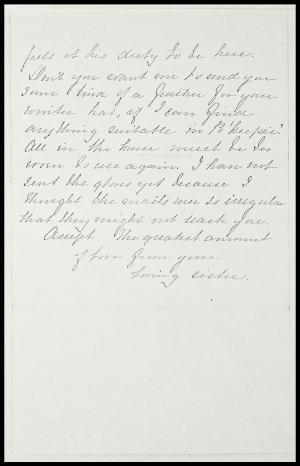 feels it his duty to be here.
Don't you want me to send you
some kind of a feather for your
winter hat, if I can find
anything suitable in P'keepsie?
All in the house must be too
worn to use again. I have not
sent the gloves yet because I
thought the mails were so irregular
that they might not reach you.
Accept the greatest amount
of love from your
loving sister.